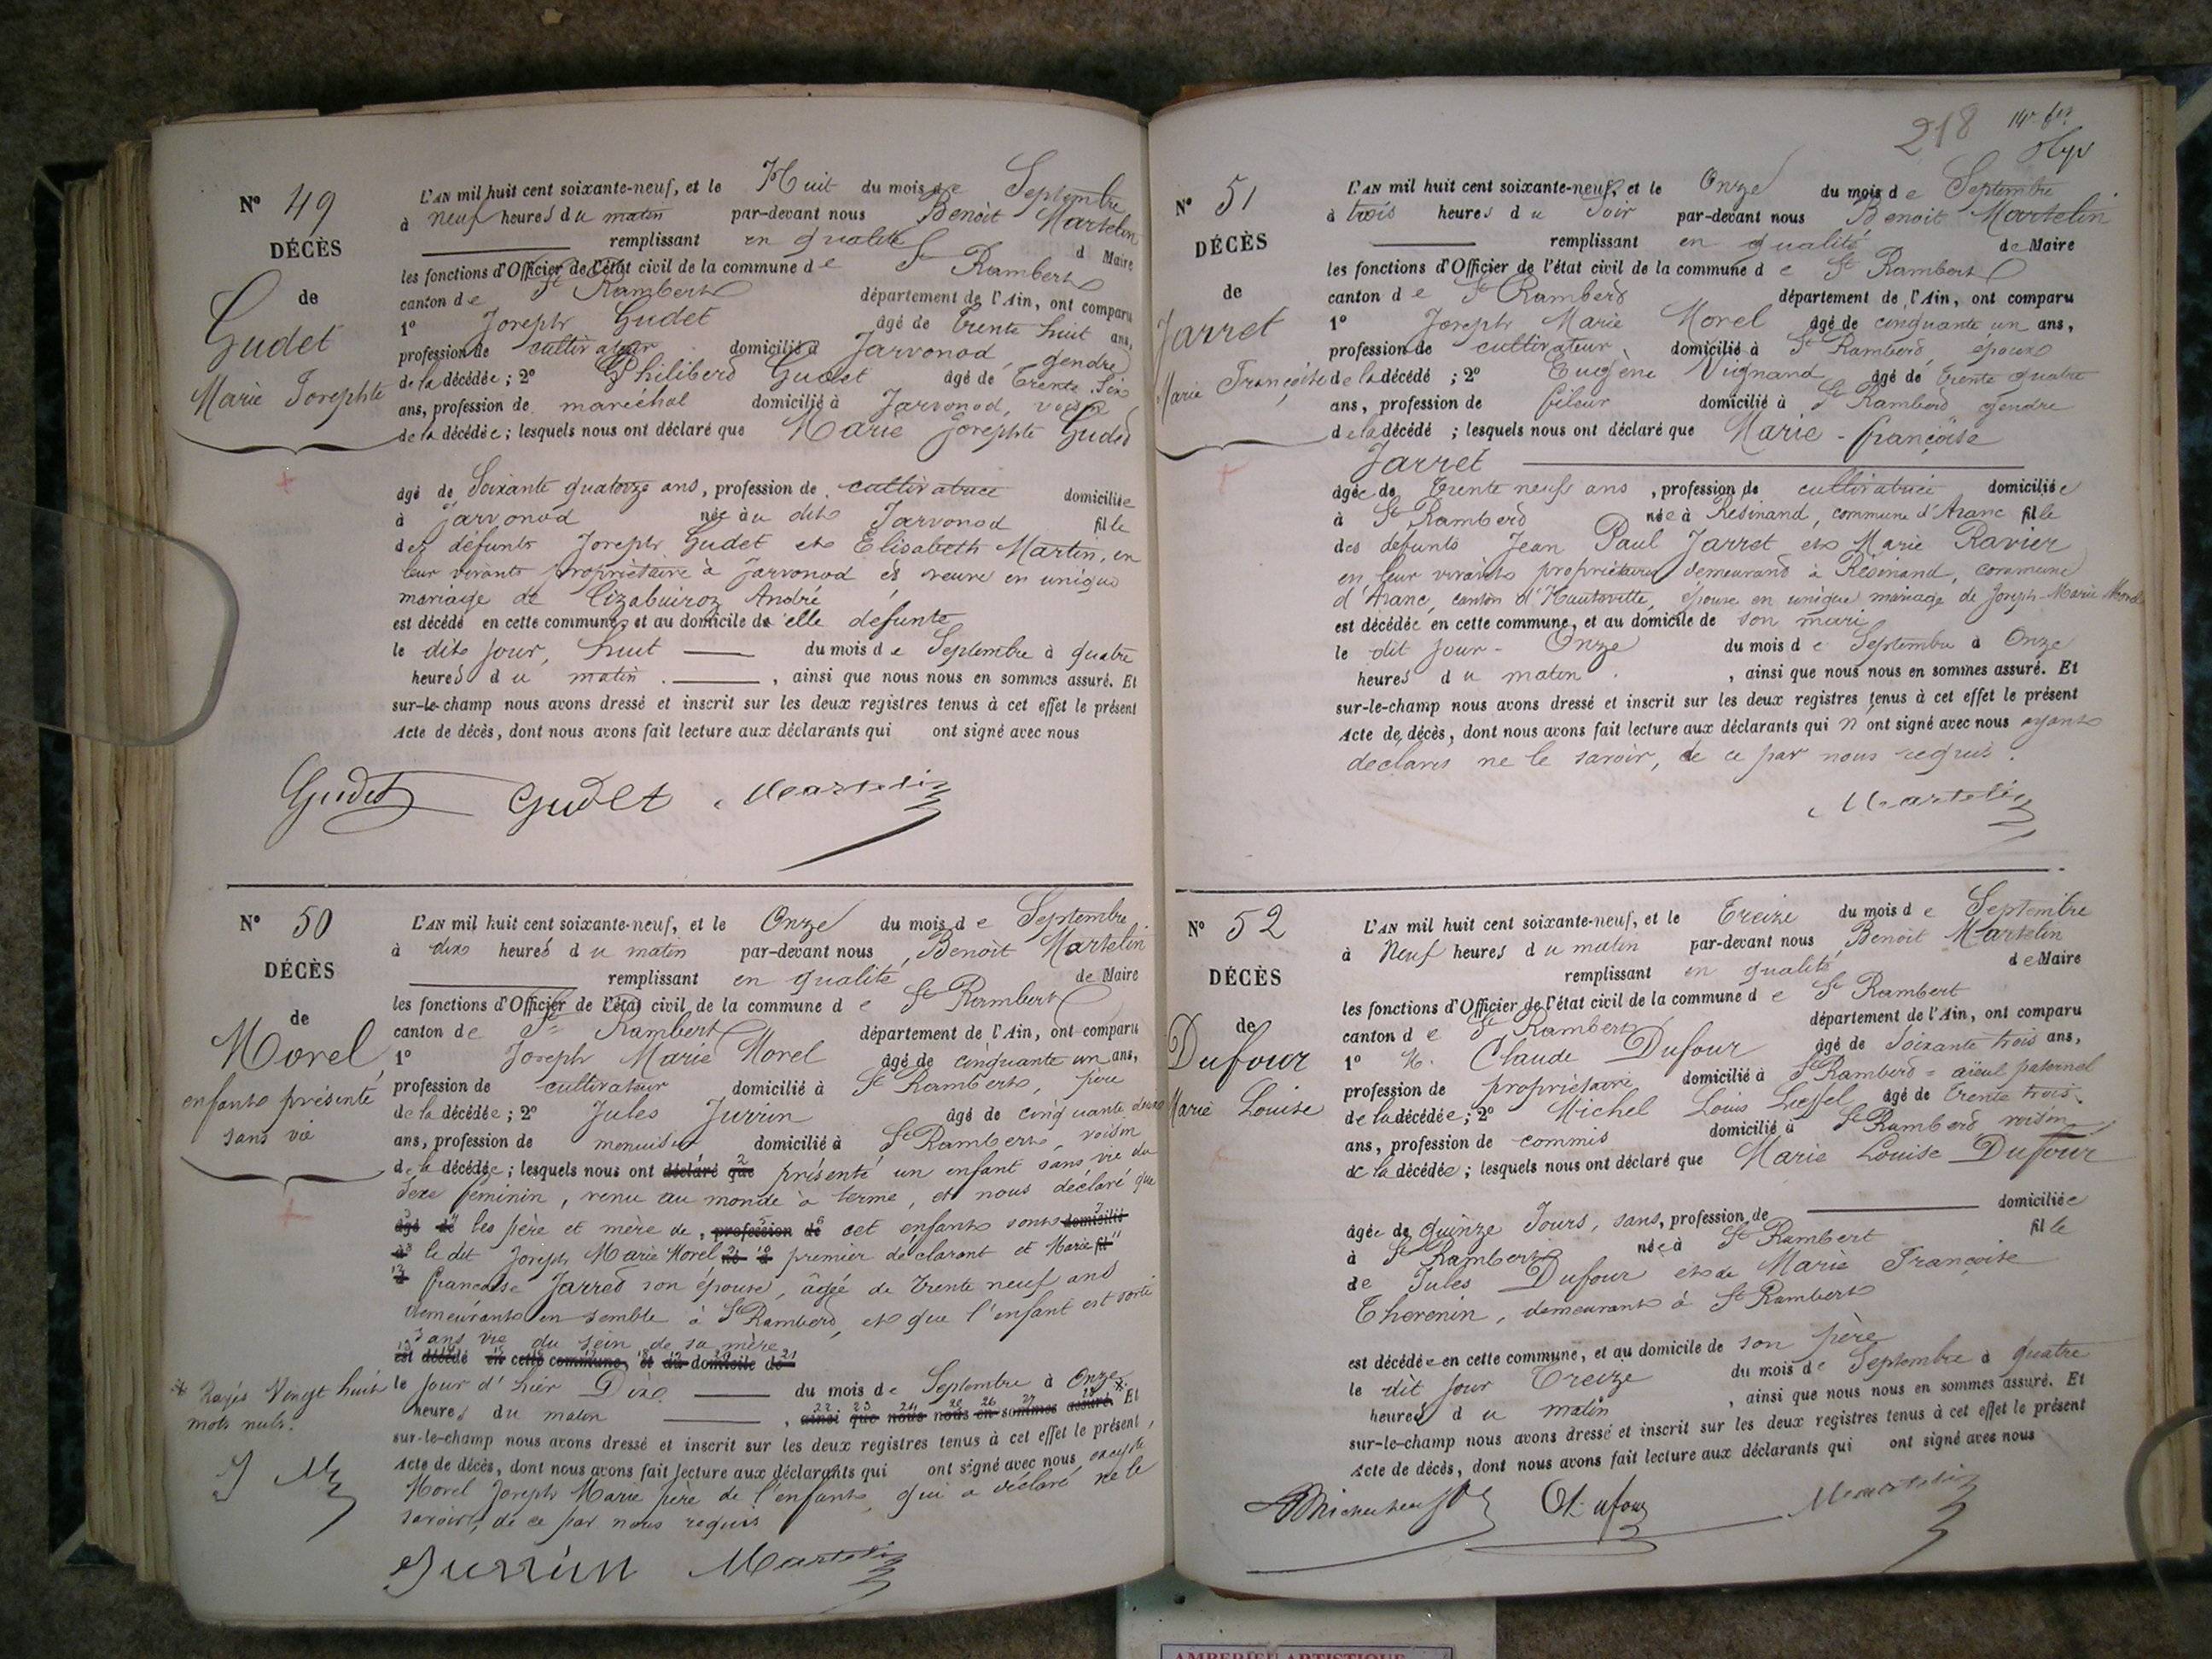 N° 49
DÉCÈS
de
Gudet
Marie Josephte
L'AN mil huit cent soixante-neuf, et le Huit du mois de Septembre
à neuf heures du matin par-devant nous Benoit Martelin
remplissant en qualité de Maire
les fonctions d'Officier de l'état civil de la commune de St Rambert
canton de St Rambert département de l'Ain, ont comparu
1° Joseph Gudet âgé de trente huit ans,
profession de cultivateur domicilié à Jarvonod, gendre
de la décédée; 2° Philibert Gudet âgé de trente six
ans, profession de maréchal domicilié à Jarvonod, voisin
de la décédée; lesquels nous ont déclaré que Marie Josephte Gudet
âgé de Soixante quatorze ans, profession de cultivatrice domiciliée
à Jarvonod née au dit Jarvonod fille
des défunts Joseph Gudet et Elisabeth Martin, en
leur vivant propriétaire à Jarvonod et veuve en unique
mariage de Cizabuiroz André
est décédé en cette commune, et au domicile de elle défunte
le dit jour, huit du mois de Septembre à quatre
heures du matin, ainsi que nous nous en sommes assuré. Et
sur-le-champ nous avons dressé et inscrit sur les deux registres tenus à cet effet le présent
Acte de décès, dont nous avons fait lecture aux déclarants qui ont signé avec nous
Gudet Gudet Martelin
N° 50
DÉCÈS
de
Morel,
enfant présenté
sans vie
L'AN mil huit cent soixante-neuf, et le Onze du mois de Septembre
à dix heures du matin par-devant nous, Benoit Martelin
remplissant en qualité de Maire
les fonctions d'Officier de l'état civil de la commune de St Rambert
canton de St Rambert département de l'Ain, ont comparu
1° Joseph Marie Morel âgé de cinquante un ans,
profession de cultivateur domicilié à St Rambert, père
de la décédée; 2° Jules Jurrun âgé de cinquante deux
ans, profession de menuisier domicilié à St Rambert, voisin
de la décédée; lesquels nous ont déclaré que présenté un enfant sans vie du
sexe féminin, venu au monde à terme, et nous déclaré que
âgé de les père et mère de, profession de cet enfant sont domicilié
à le dit Joseph Marie Morel né à premier déclarant et Marie fil
d francoise Jarret son épouse, âgée de trente neuf ans
demeurant en semble à St Rambert, et que l'enfant est sorti
sans vie du sein de sa mère
est décédé en cette commune, et au domicile de
le jour d'hier Dix du mois de Septembre à Onze *
heures du matin, ainsi que nous nous en sommes assuré. Et
sur-le-champ nous avons dressé et inscrit sur les deux registres tenus à cet effet le présent
Acte de décès, dont nous avons fait lecture aux déclarants qui ont signé avec nous, excepté
Morel Joseph Marie père de l'enfant, qui a déclaré ne le
savoir, de ce par nous requis
* Rayés vingt huit
mots nuls.
J M
Jurrun Martelin
218
N° 51
DÉCÈS
de
Jarret
Marie Françoise
L'AN mil huit cent soixante-neuf, et le Onze du mois de Septembre
à trois heures du soir par-devant nous Benoit Martelin
remplissant en qualité de Maire
les fonctions d'Officier de l'état civil de la commune de St Rambert
canton de St Rambert département de l'Ain, ont comparu
1° Joseph Marie Morel âgé de cinquante un ans,
profession de cultivateur domicilié à St Rambert, époux
de la décédé; 2° Eugène Vignand âgé de trente quatre
ans, profession de fileur domicilié à St Rambert gendre
de la décédé; lesquels nous ont déclaré que Marie-françoise
Jarret
âgée de trente neuf ans, profession de cultivatrice domiciliée
à St Rambert née à Résinand, commune d'Aranc fille
des défunts Jean Paul Jarret et Marie Ravier
en leur vivant propriétaires demeurant à Résinand, commune
d'Aranc, canton d'Hauteville, épouse en unique mariage de Joseph-Marie Morel
est décédée en cette commune, et au domicile de son mari
le dit jour - Onze du mois de Septembre à Onze
heures du matin, ainsi que nous nous en sommes assuré. Et
sur-le-champ nous avons dressé et inscrit sur les deux registres tenus à cet effet le présent
Acte de décès, dont nous avons fait lecture aux déclarants qui n'ont signé avec nous ayant
déclaré ne le savoir, de ce par nous requis.
Martelin
N° 52
DÉCÈS
de
Dufour
Marie Louise
L'AN mil huit cent soixante-neuf, et le Treize du mois de Septembre
à Neuf heures du matin par-devant nous Benoit Martelin
remplissant en qualité de Maire
les fonctions d'Officier de l'état civil de la commune de St Rambert
canton de St Rambert département de l'Ain, ont comparu
1° M. Claude Dufour âgé de soixante trois ans,
profession de propriétaire domicilié à St Rambert = aïeul paternel
de la décédée; 2° Michel Louis âgé de trente trois
ans, profession de commis domicilié à St Rambert voisin
de la décédée; lesquels nous ont déclaré que Marie Louise Dufour
âgée de quinze Jours, sans, profession de domiciliée
à St Rambert née à St Rambert fille
de Jules Dufour et de Marie Françoise
Thevenin, demeurant à St Rambert
est décédée en cette commune, et au domicile de son père
le dit jour Treize du mois de Septembre à quatre
heures du matin, ainsi que nous nous en sommes assuré. Et
sur-le-champ nous avons dressé et inscrit sur les deux registres tenus à cet effet le présent
Acte de décès, dont nous avons fait lecture aux déclarants qui ont signé avec nous
Dufour Martelin
AMBERIEU ARTISTIQUE